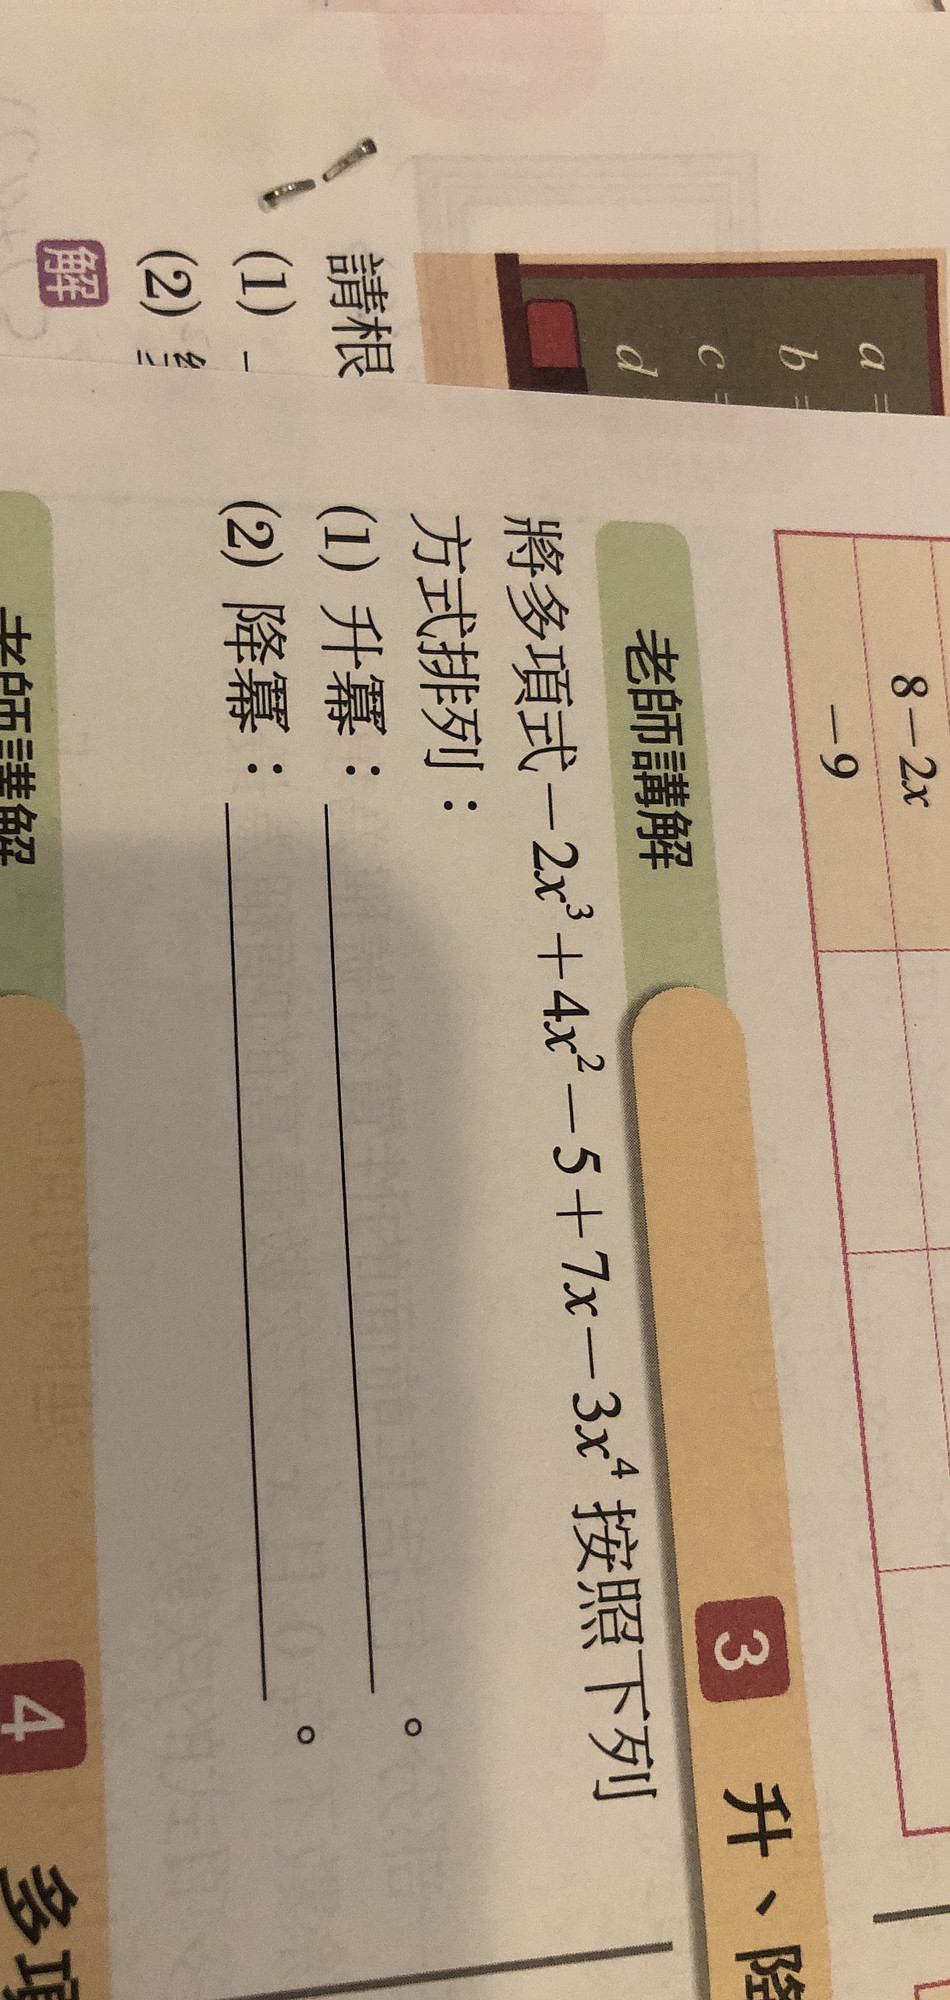 a =
b =
c =
d
請根
(1) –
(2)
解
8－2x
－9
3 升、降
老師講解
將多項式－2x³＋4x²－5＋7x－3x⁴ 按照下列
方式排列：
(1) 升冪：＿＿＿＿＿＿＿＿。
(2) 降冪：＿＿＿＿＿＿＿＿。
4 多項
老師講解